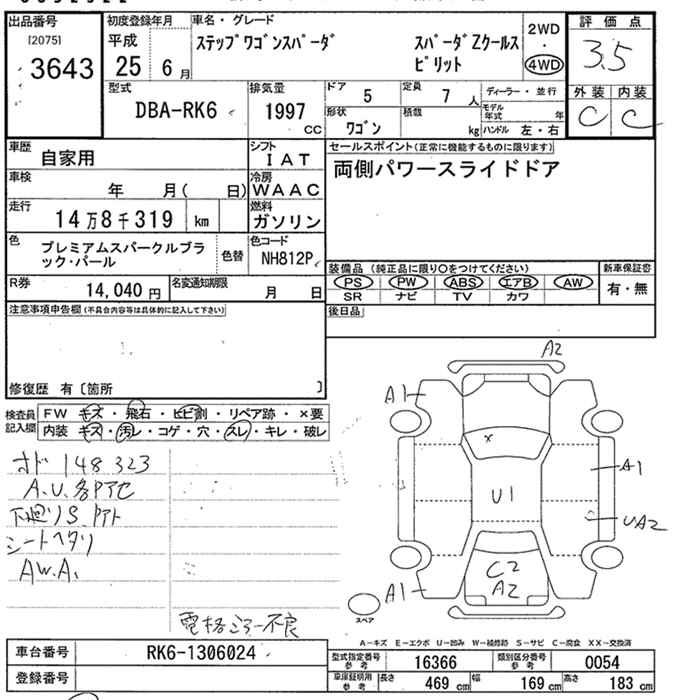 出品番号
[2075]
3643
初度登録年月
平成
25 6月
車名・グレード
ステップワゴンスパーダ
スパーダZクールス
ピリット
2WD
・
4WD
評価点
3.5
外装 内装
C C
型式
DBA-RK6
排気量
1997
CC
ドア 5
定員 7 人
ディーラー・並行
形状 ワゴン
積載 kg
モデル年式 年
ハンドル 左・右
車歴 自家用
シフト IAT
車検 年 月( 日)
冷房 WAAC
走行 14万8千319 km
燃料 ガソリン
色 プレミアムスパークルブラ
ック・パール
色替
色コード
NH812P
R券 14,040 円
名変通知期限 月 日
セールスポイント(正常に機能するものに限ります)
両側パワースライドドア
装備品(純正品に限り○をつけてください)
PS PW ABS エアB AW
SR ナビ TV カワ
新車保証書
有・無
後日品
注意事項申告欄(不具合内容等は具体的に記入して下さい)
修復歴 有〔箇所 〕
検査員
記入欄
FW キズ・飛石・ヒビ割・リペア跡・×要
内装 キズ・汚レ・コゲ・穴・スレ・キレ・破レ
オド 148323
A.U.各Pアセ
下廻りS.Pアト
シートヘタリ
AW.A.
電格ミラー不良
A2
A1
A1
U1
UA2
C2
A2
A1
スペア
A−キズ E−エクボ U−凹み W−補修跡 S−サビ C−腐食 XX−交換済
車台番号 RK6-1306024
登録番号
型式指定番号
参考
16366
類別区分番号
参考
0054
車庫証明用
参考
長さ 469 cm
幅 169 cm
高さ 183 cm